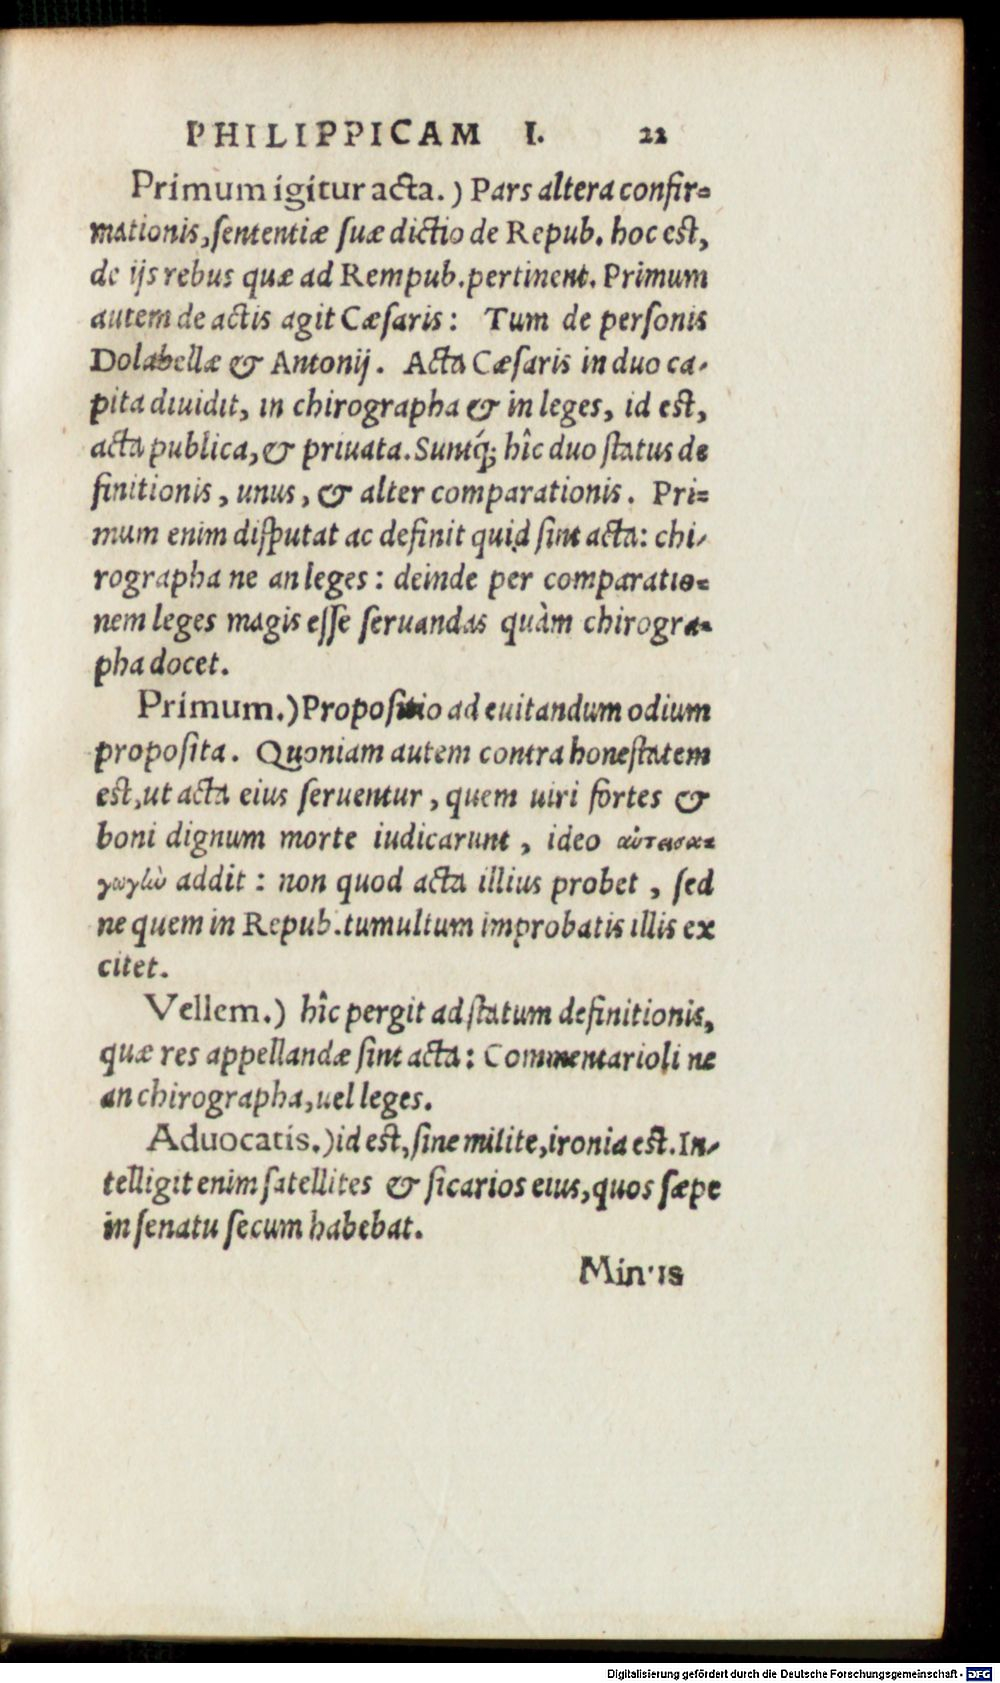 PHILIPPICAM I. 22
Primum igitur acta.) Pars altera confir=
mationis, sententiæ suæ dictio de Repub. hoc est,
de ijs rebus quæ ad Rempub. pertinent. Primum
autem de actis agit Cæsaris: Tum de personis
Dolabellæ & Antonij. Acta Cæsaris in duo ca-
pita diuidit, in chirographa & in leges, id est,
acta publica, & priuata. Suntq́; hîc duo status de
finitionis, unus, & alter comparationis. Pri=
mum enim disputat ac definit quid sint acta: chi-
rographa ne an leges: deinde per comparatio=
nem leges magis esse seruandas quàm chirogra=
pha docet.
Primum.) Propositio ad euitandum odium
proposita. Quoniam autem contra honestatem
est, ut acta eius seruentur, quem uiri fortes &
boni dignum morte iudicarunt, ideo αὐτεισα=
γωγὼ addit: non quod acta illius probet, sed
ne quem in Repub. tumultum improbatis illis ex
citet.
Vellem.) hîc pergit ad statum definitionis,
quæ res appellandæ sint acta: Commentarioli ne
an chirographa, uel leges.
Aduocatis.) id est, sine milite, ironia est. In-
telligit enim satellites & sicarios eius, quos sæpe
in senatu secum habebat.
Minus
Digitalisierung gefördert durch die Deutsche Forschungsgemeinschaft - DFG